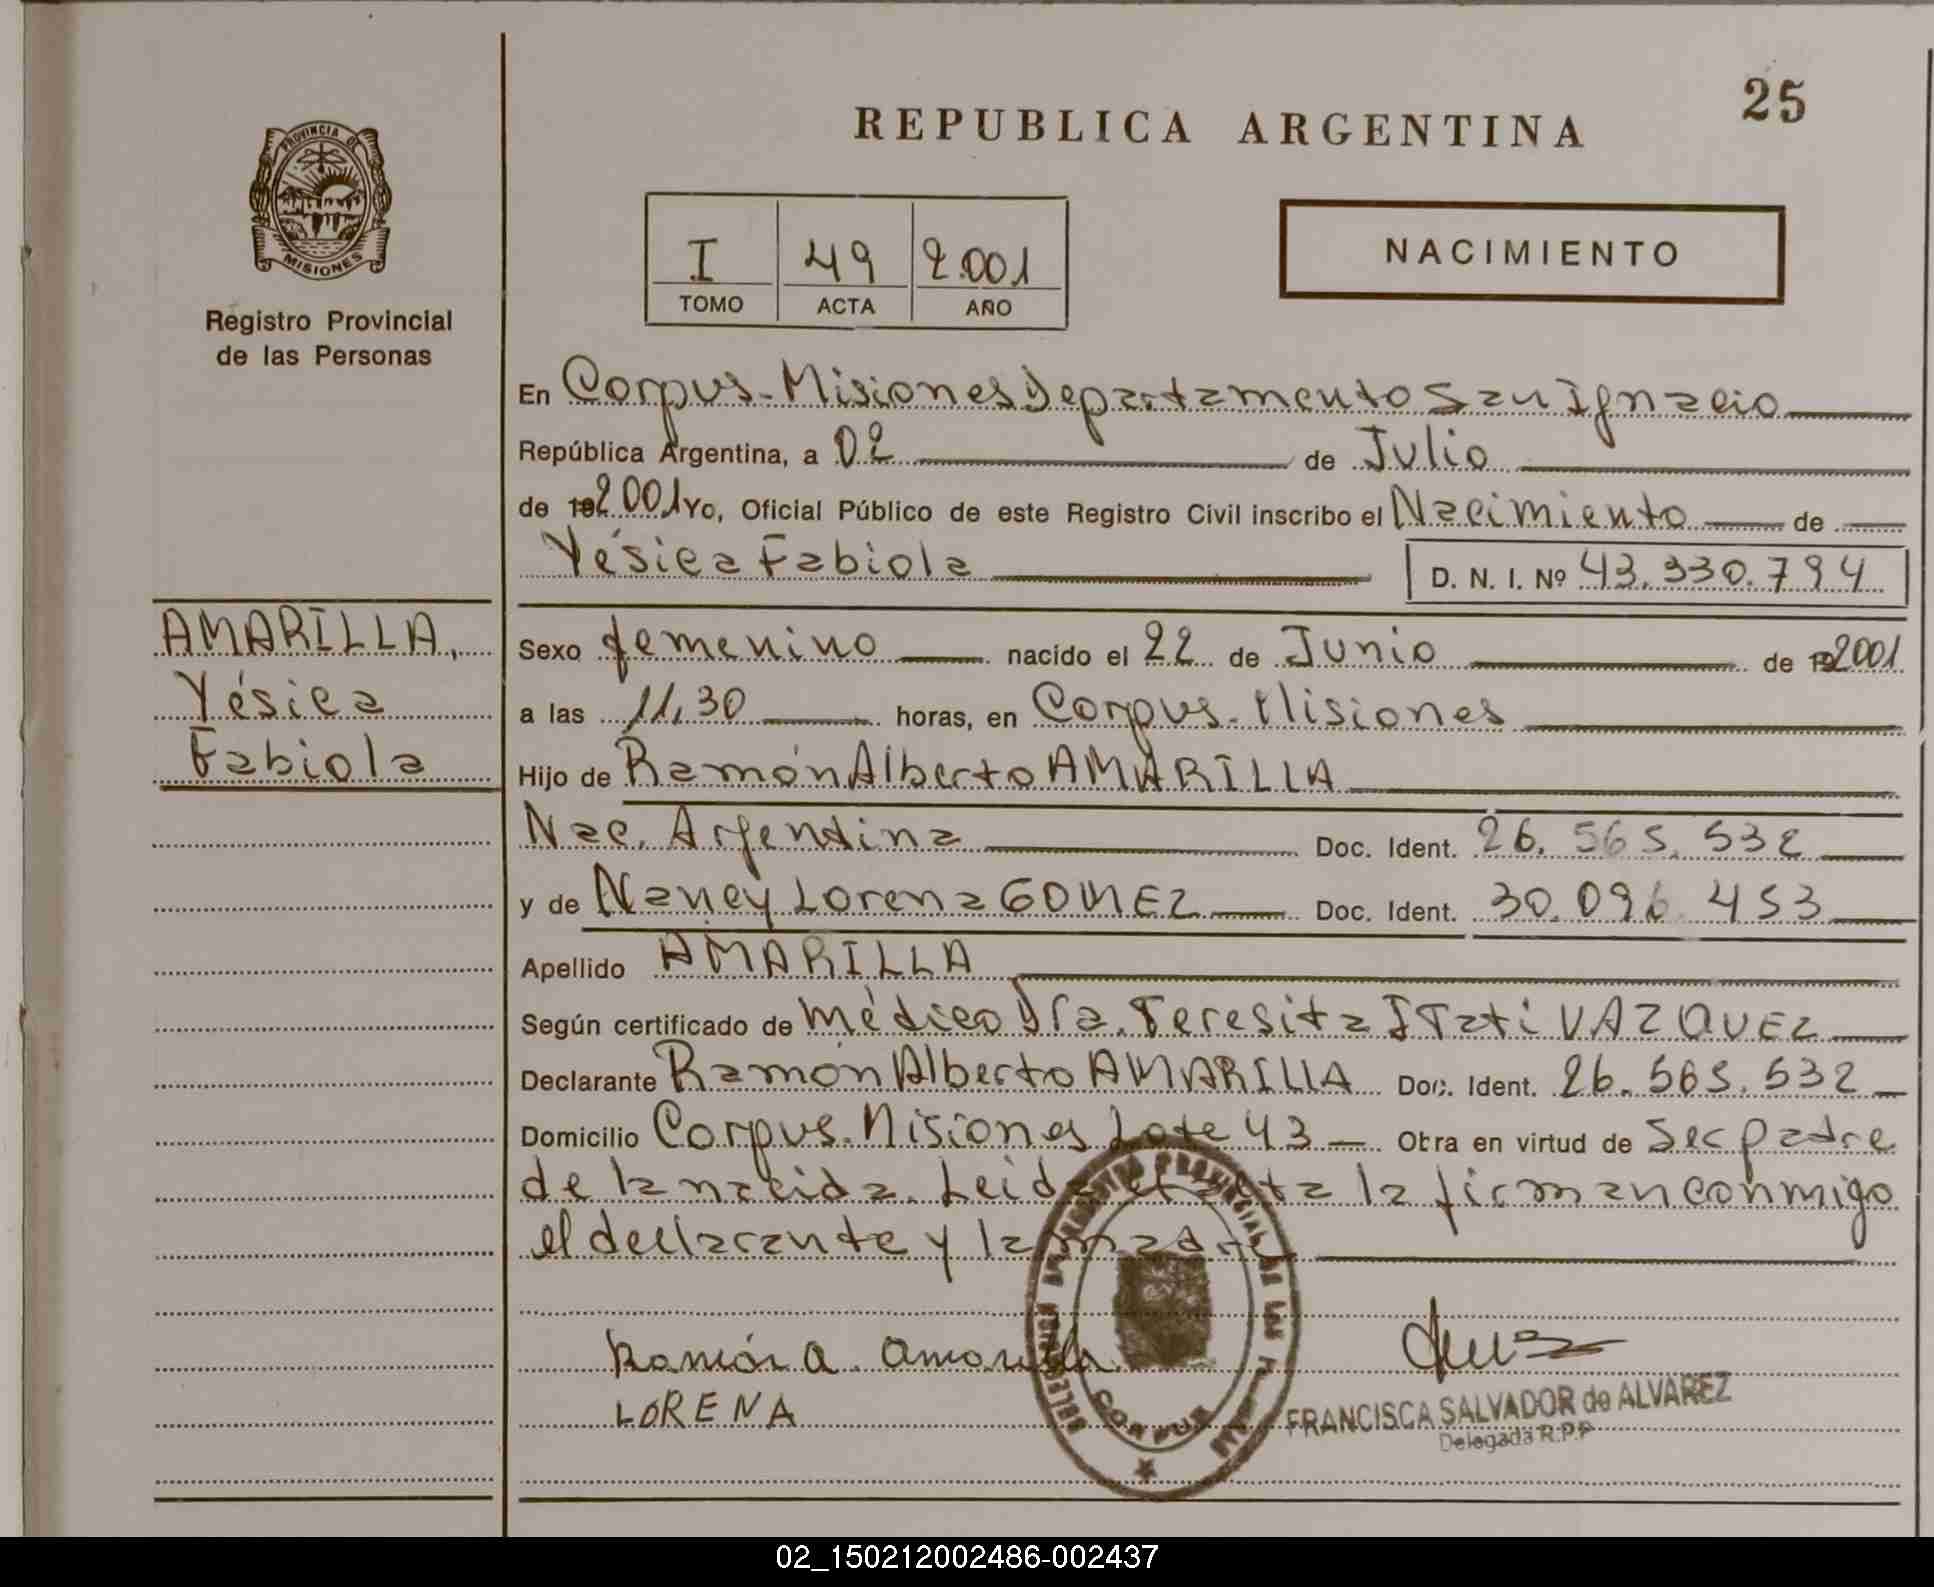 25
REPUBLICA ARGENTINA
PROVINCIA DE
MISIONES
Registro Provincial
de las Personas
I 49 2.001
TOMO ACTA AÑO
NACIMIENTO
En Corpus-Misiones Departamento San Ignacio
República Argentina, a 02 de Julio
de 2001 Yo, Oficial Público de este Registro Civil inscribo el Nacimiento de
Yésica Fabiola D. N. I. Nº 43.330.794
AMARILLA,
Yésica
Fabiola
Sexo femenino nacido el 22 de Junio de 2001
a las 11,30 horas, en Corpus-Misiones
Hijo de Ramón Alberto AMARILLA
Nac. Argentina Doc. Ident. 26.565.532
y de Nancy Lorena GOMEZ Doc. Ident. 30.096.453
Apellido AMARILLA
Según certificado de médico Dra. Teresita ITati VAZQUEZ
Declarante Ramón Alberto AMARILLA Doc. Ident. 26.565.532
Domicilio Corpus-Misiones Lote 43 Obra en virtud de Ser padre
de la nacida. Leida el acta la firman conmigo
el declarante y la madre
Ramón A. Amarilla
LORENA
PROVINCIAL DE LAS
CORPUS
FRANCISCA SALVADOR de ALVAREZ
Delegada R.P.P
02_150212002486-002437